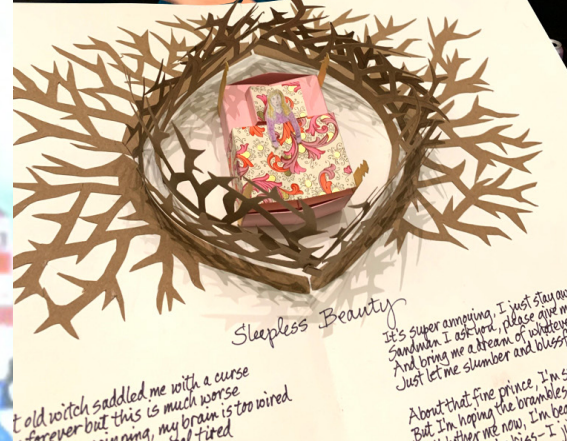 Sleepless Beauty
t old witch saddled me with a curse
forever but this is much worse
my brain is too wired
tired
It's super annoying, I just stay aw
Sandman I ask you, please give m
And bring me a dream of whateve
Just let me slumber and blissf
About that fine prince, I'm s
But I'm hoping the brambles
me now, I'm bea